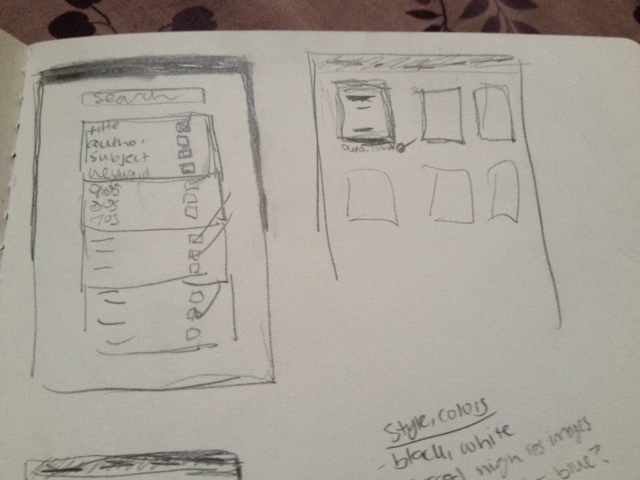 search
title
author
subject
keyword
90s
80s
70s
Style, colors
- black, white
high res images
blue?